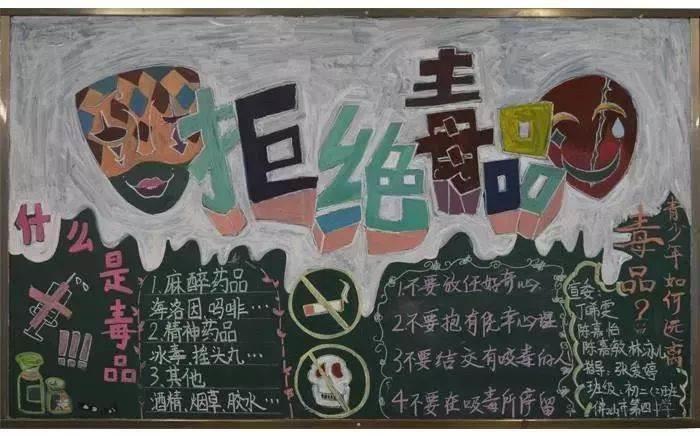 拒绝毒品
什么是毒品
1.麻醉药品
海洛因.吗啡…
2.精神药品
冰毒.摇头丸…
3.其他
酒精.烟草.胶水…
1不要放任好奇心
2不要抱有侥幸心理
3不要结交有吸毒的人
4不要在吸毒所停留
青少年如何远离
毒品?
宣委:
陈嘉怡
陈嘉敏
指导:张爱婷
班级:初二(2)班
佛山市第四中学